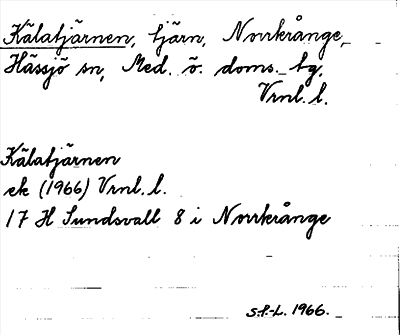 Kälatjärnen, tjärn, Norrkrånge,
Hässjö sn, Med. ö. doms. tg.
Vrnl. l.
Kälatjärnen
ek (1966) Vrnl. l.
17 H Sundsvall 8 i Norrkrånge
S.f.-L. 1966.